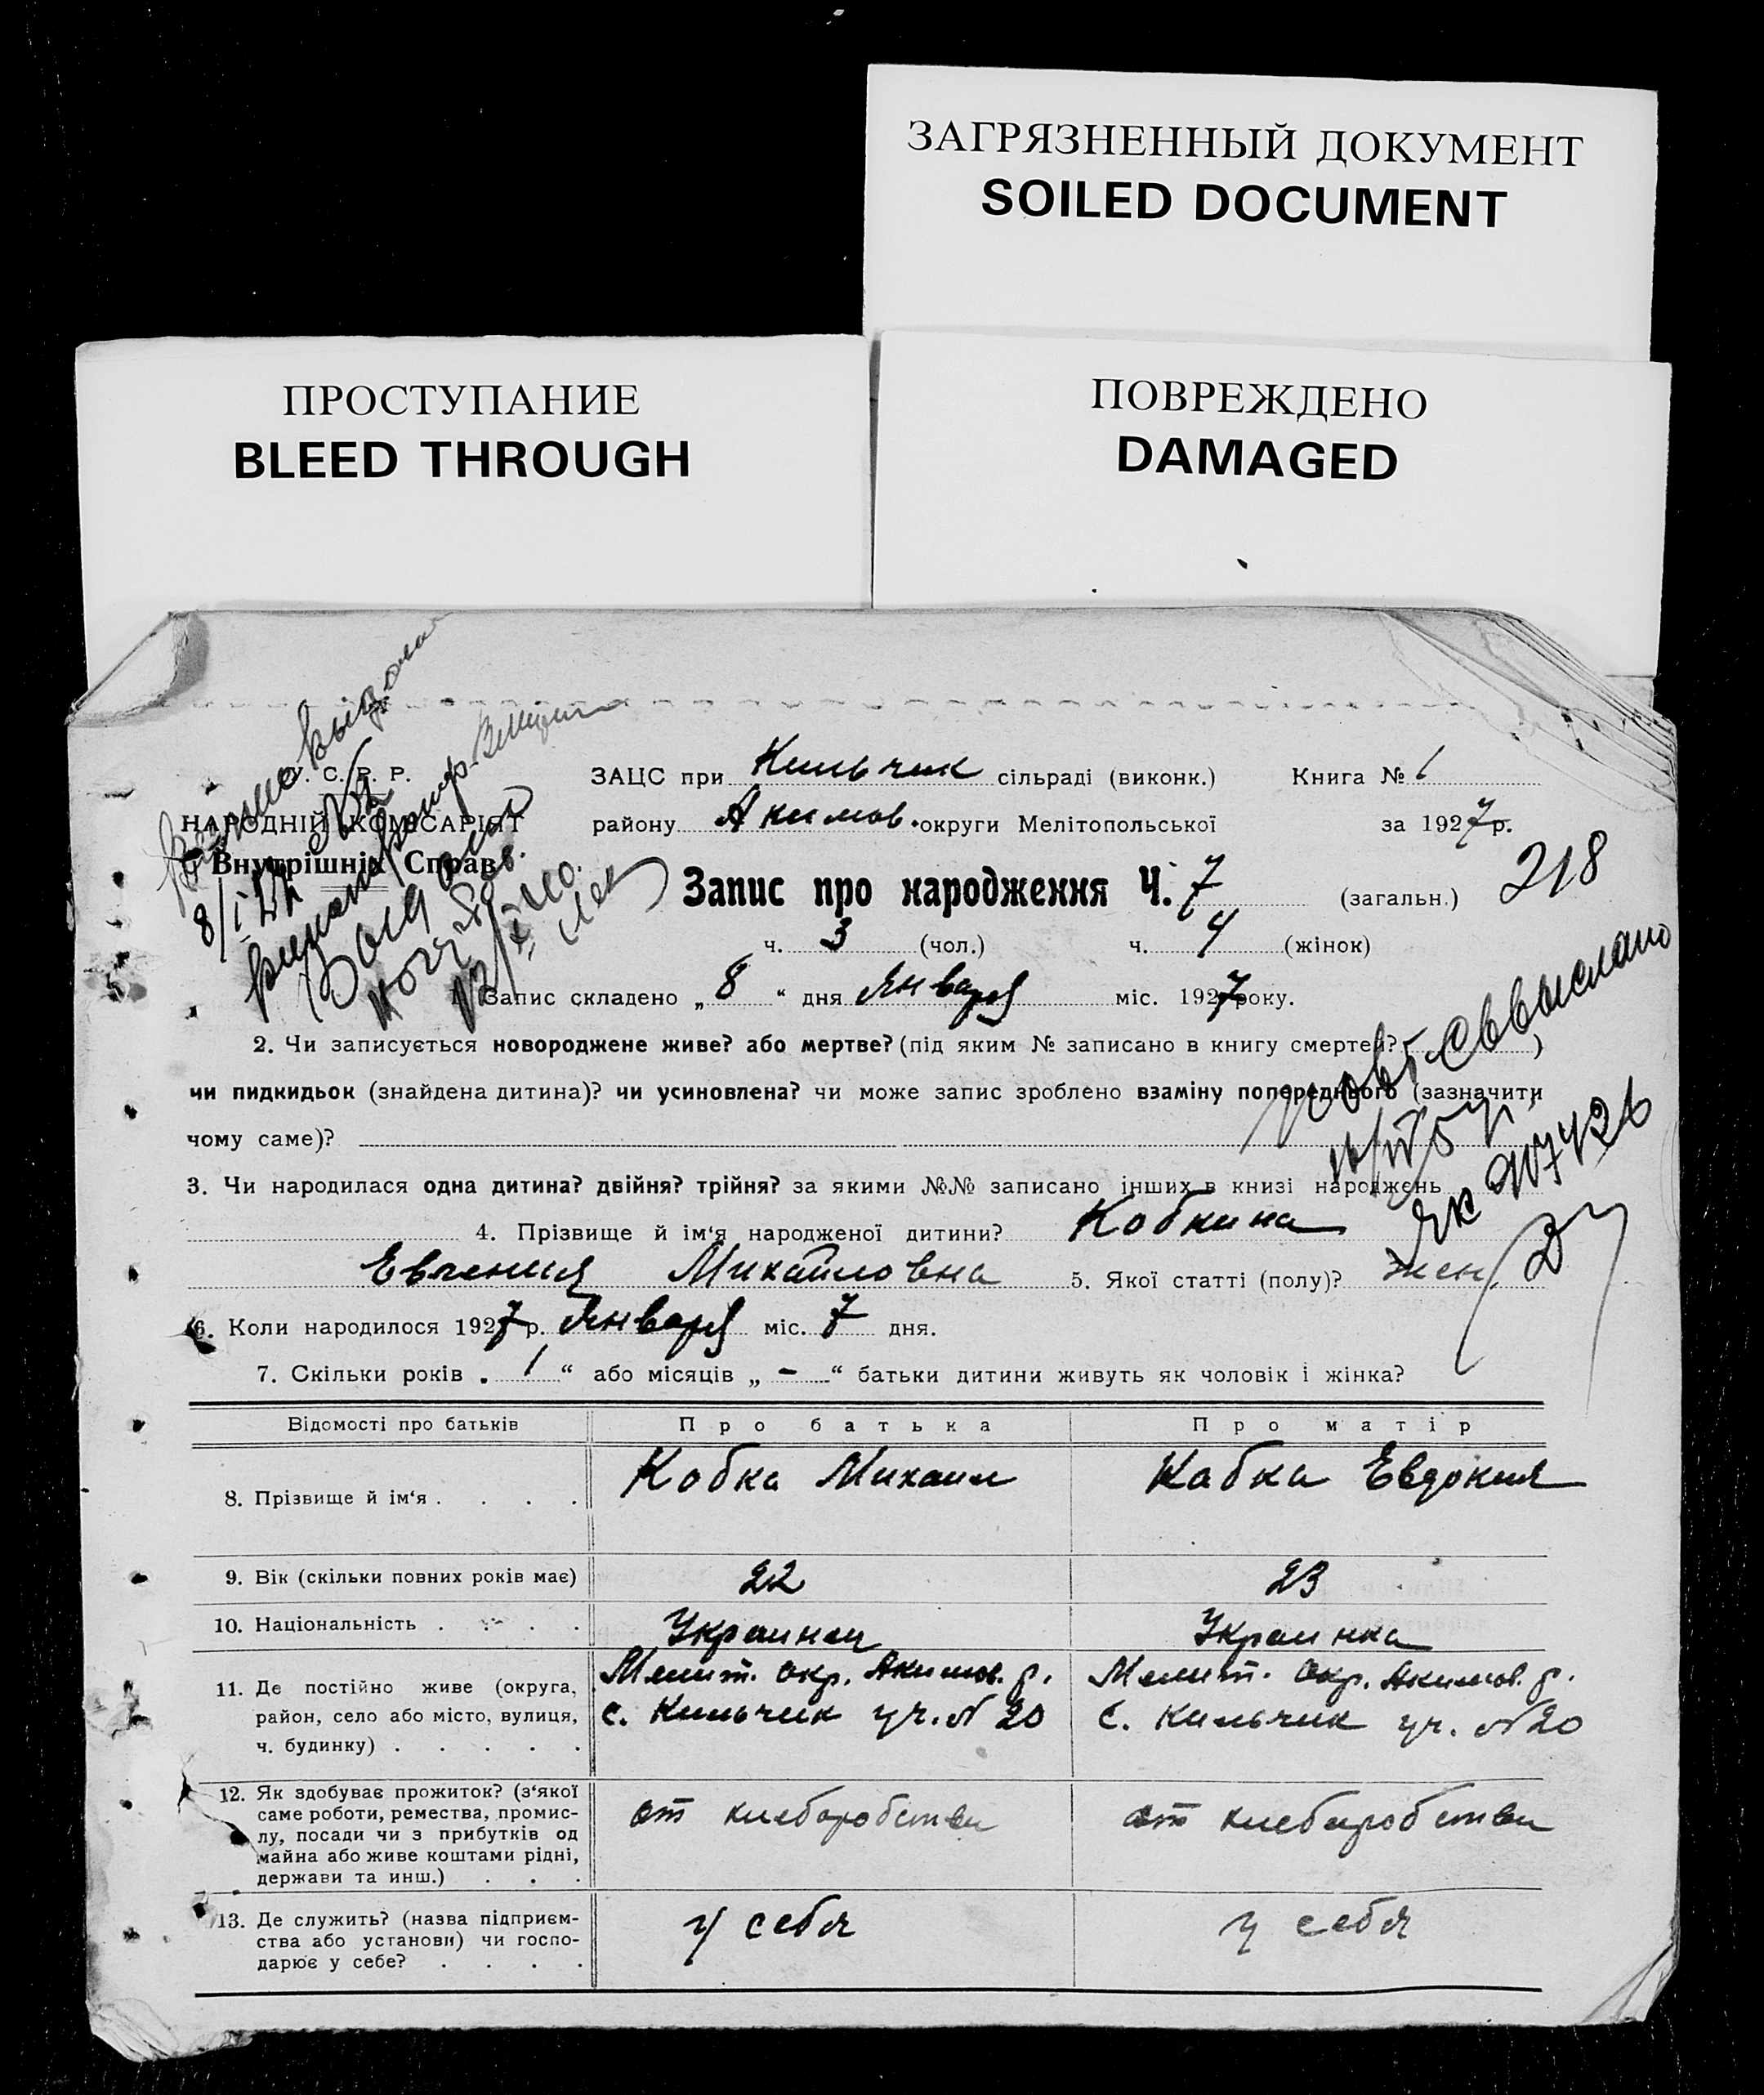 ЗАГРЯЗНЕННЫЙ ДОКУМЕНТ
SOILED DOCUMENT
ПРОСТУПАНИЕ
BLEED THROUGH
ПОВРЕЖДЕНО
DAMAGED
У. С. Р. Р.
НАРОДНІЙ КОМІСАРІЯТ
Внутрішніх Справ.
8/I
ЗАЦС при Кильчик сільраді (виконк.) Книга № 1
району Акимов. округи Мелітопольської за 1927 р.
Запис про народження Ч. 7 (загальн.) 218
ч. 3 (чол.) ч. 4 (жінок)
1. Запис складено „ 8 “ дня Января міс. 1927 року.
2. Чи записується новороджене живе? або мертве? (під яким № записано в книгу смертей?
чи пидкидьок (знайдена дитина)? чи усиновлена? чи може запис зроблено взаміну попереднього (зазначити
чому саме)?
3. Чи народилася одна дитина? двійня? трійня? за якими №№ записано інших в книзі народжень
4. Прізвище й ім‘я народженої дитини? Кобкина
Евгения Михайловна 5. Якої статті (полу)? жен.
6. Коли народилося 1927 р. Января міс. 7 дня.
7. Скільки років „ 1 “ або місяців „ - “ батьки дитини живуть як чоловік і жінка?
Відомості про батьків Про батька Про матір
8. Прізвище й ім‘я . . . . Кобка Михаил Кабка Евдокия
9. Вік (скільки повних років має) 22 23
10. Національність . . . . Украинец Украинка
11. Де постійно живе (округа, Мелит. окр. Акимов. р. Мелит. окр. Акимов. р.
район, село або місто, вулиця, с. Кильчик уч. № 20 с. Кильчик уч. № 20
ч. будинку) . . . . .
12. Як здобуває прожиток? (з‘якої
саме роботи, ремества, промис- от хлеборобства от хлеборобства
лу, посади чи з прибутків од
майна або живе коштами рідні,
держави та инш.) . . .
13. Де служить? (назва підприєм- у себя у себя
ства або установи) чи госпо-
дарює у себе? . . . .